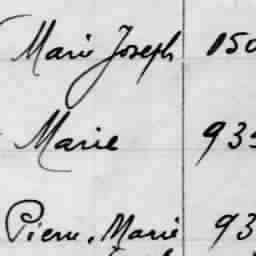 Marie Joseph 150
Marie 935
Pierre, Marie 93